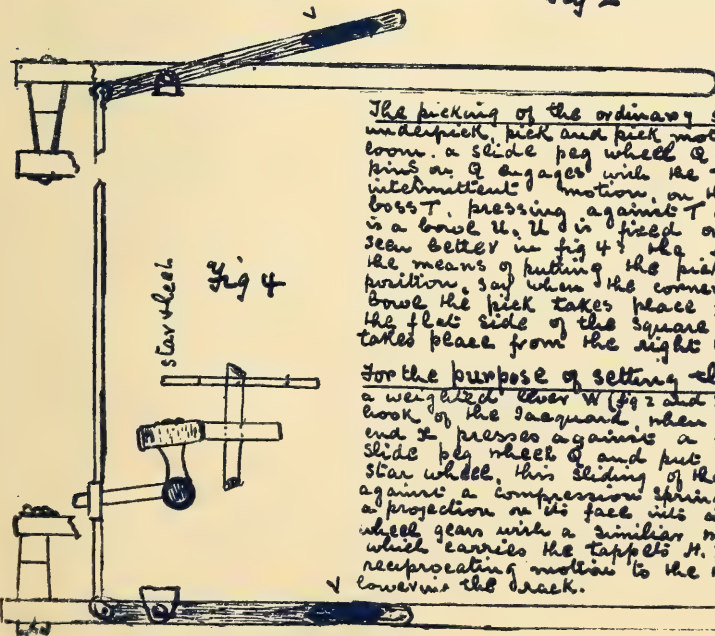 Fig 2
V
The picking of the ordinary s
underpick, pick and pick mot
loom, a slide peg wheel Q
pins on Q engages with the
intermittent motion, on th
boss T, pressing against T
is a bowl U, U is fixed o
seen better in fig 4? the
the means of putting the pick
position, say when the corner
bowl the pick takes place
the flat side of the square
takes place from the right
For the purpose of setting th
a weighted lever W (fig 2 and
hook of the Jacquard, when
end X presses against a
slide peg wheel Q and put
star wheel, this sliding of the
against a compression sprin
a projection on its face into a
wheel gears with a similiar m
which carries the tappets H.
reciprocating motion to the
lowering the rack.
Fig 4
star wheel
V